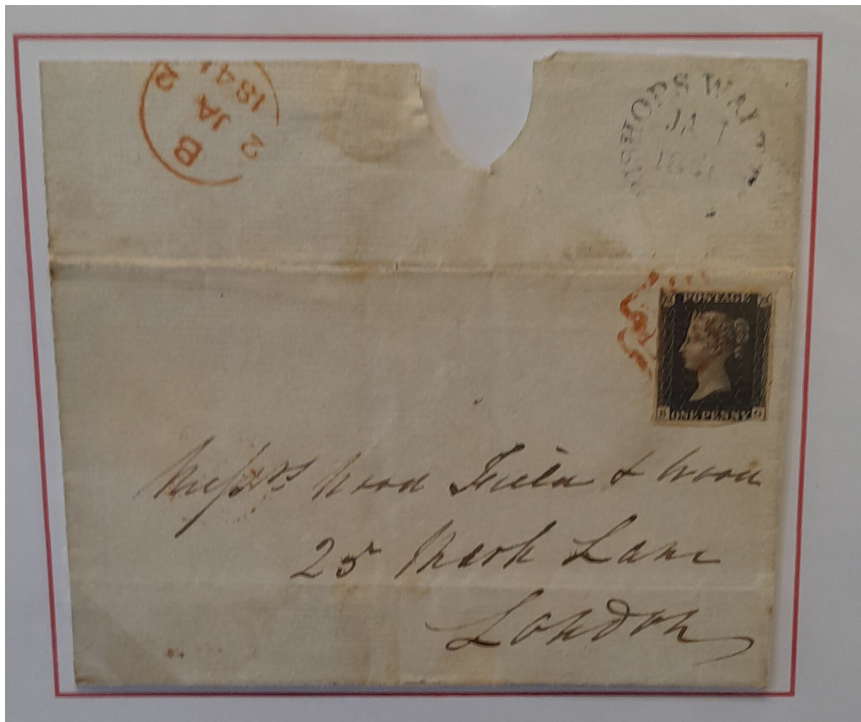 B
2 JA 2
1841
BISHOPS WALT
JA 1
POSTAGE
B G
ONE PENNY
Messrs Wood Field & Wood
25 Mark Lane
London